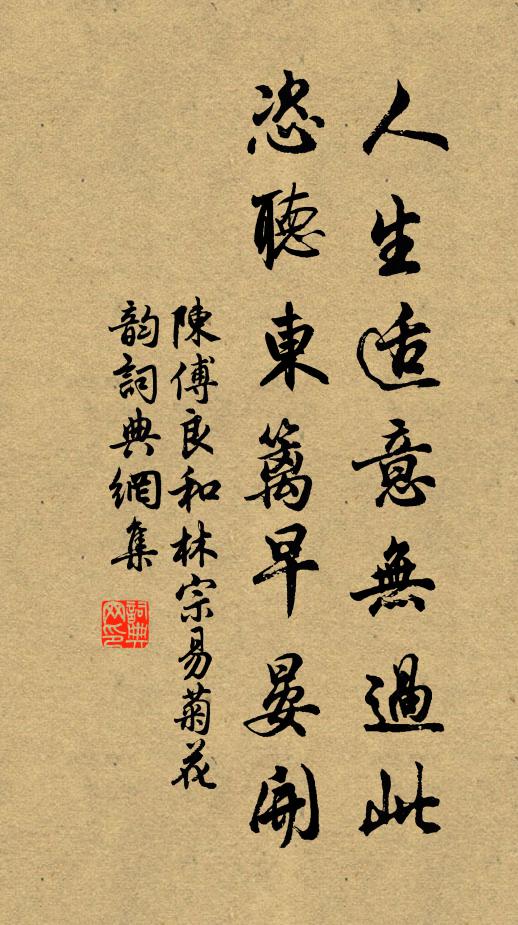 人生适意無過此
恣聽東籬早晏開
陳傅良和林宗易菊花
韵詞典網集
詞典网印